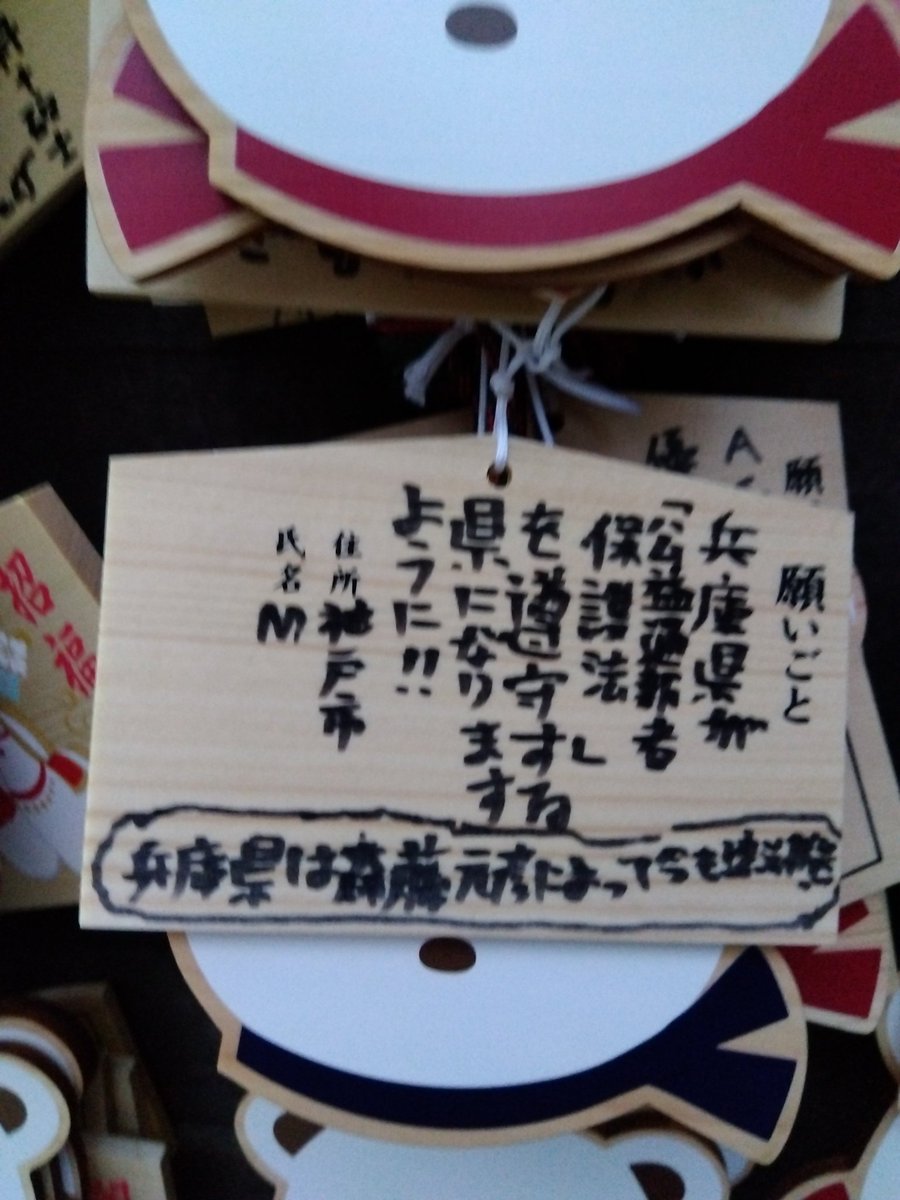 願いごと
兵庫県が
「公益通報者
保護法」
を遵守する
県になります
ように!!
住所 神戸市
氏名 M
兵庫県は斎藤元彦によって
招福
願
A
優